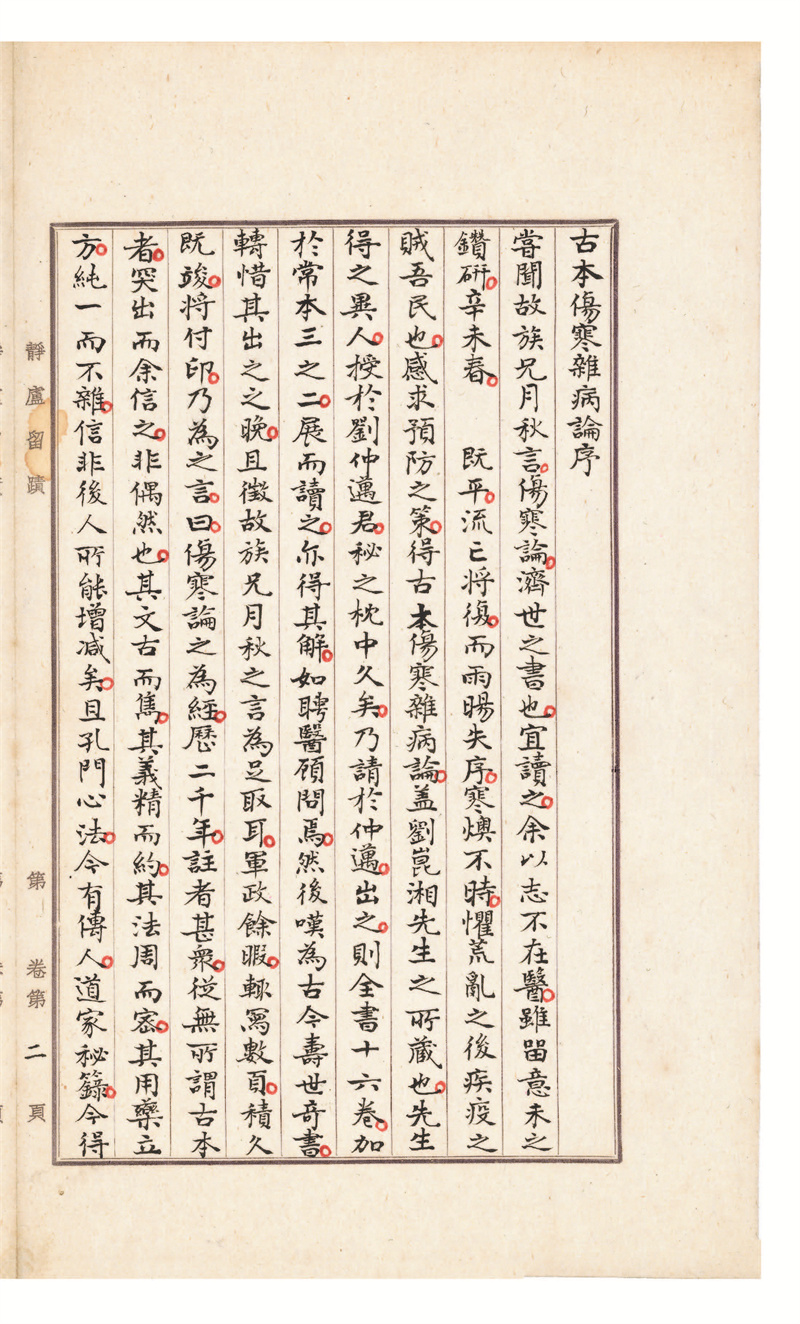 古本傷寒雜病論序
嘗聞故族兄月秋言。傷寒論。濟世之書也。宜讀之。余以志不在醫。雖留意未之
鑽研。辛未春。　　既平。流亡將復。而雨暘失序。寒燠不時。懼荒亂之後疾疫之
賊吾民也。感求預防之策。得古本傷寒雜病論。蓋劉崑湘先生之所藏也。先生
得之異人。授於劉仲邁君。秘之枕中久矣。乃請於仲邁。出之。則全書十六卷。加
於常本三之二。展而讀之。亦得其解。如聘醫顧問焉。然後嘆為古今壽世奇書。
轉惜其出之之晚。且徵故族兄月秋之言為足取耳。軍政餘暇。輒寫數頁。積久
既竣。將付印。乃為之言。曰。傷寒論之為經。歷二千年。註者甚衆。從無所謂古本
者。突出而余信之。非偶然也。其文古而雋。其義精而約。其法周而密。其用藥立
方。純一而不雜。信非後人所能增減矣。且孔門心法。今有傳人。道家秘籙。今得
靜盧留蹟　第　卷第二頁